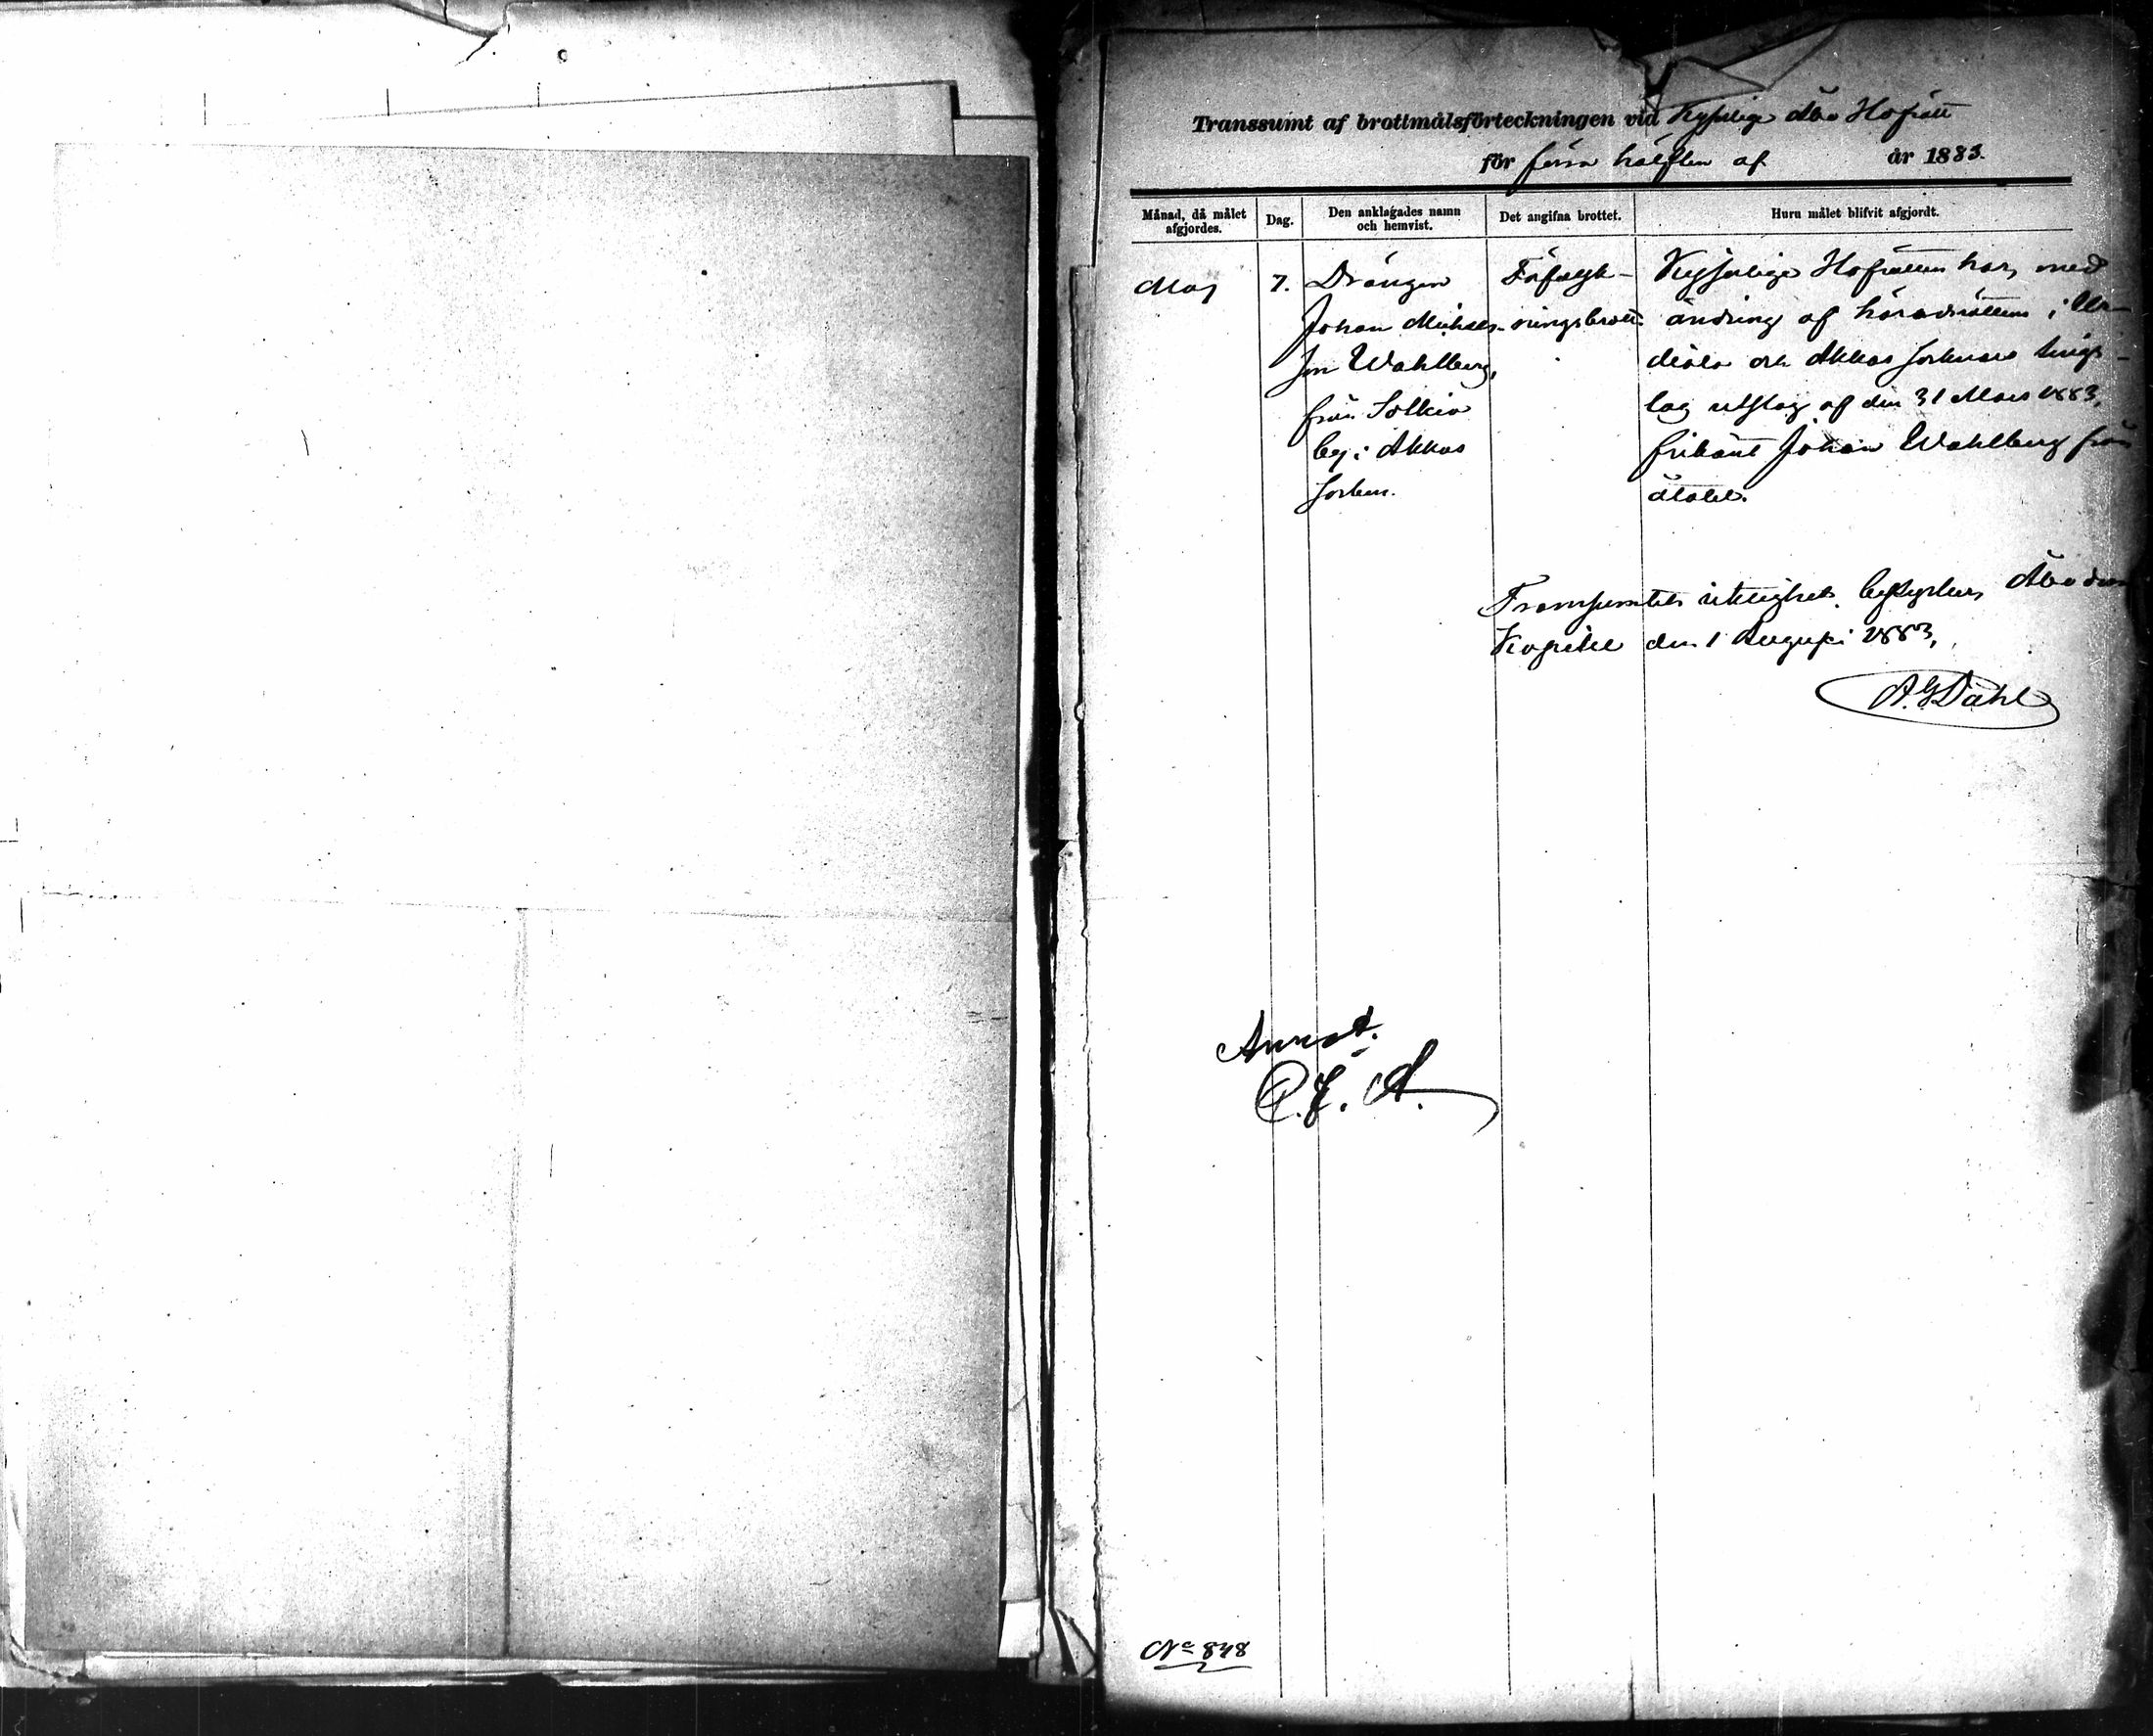 Transsumt af brottmålsförteckningen vid Kejserlige Åbo Hofrätt
för förra hälften af år 1883.
Månad, då målet afgjordes.
Dag.
Den anklagades namn och hemvist.
Det angifna brottet.
Huru målet blifvit afgjordt.
Maj
7.
Drängen
Johan Michels-
son Wahlberg,
från Solkio
by i Akkas
socken.
Förfalsk-
ningsbrott.
Kejserlige Hofrätten har, med
ändring af häradsrättens i Ur-
diala och Akkas socknars tings-
lag utslag af den 31 Mars 1883,
frikänt Johan Wahlberg från
åtalet.
Transsumtets riktighet bestyrker, Åbo Dom
Kapitel den 1 Augusti 1883,
A. G. Dahl
Annot.
No 848